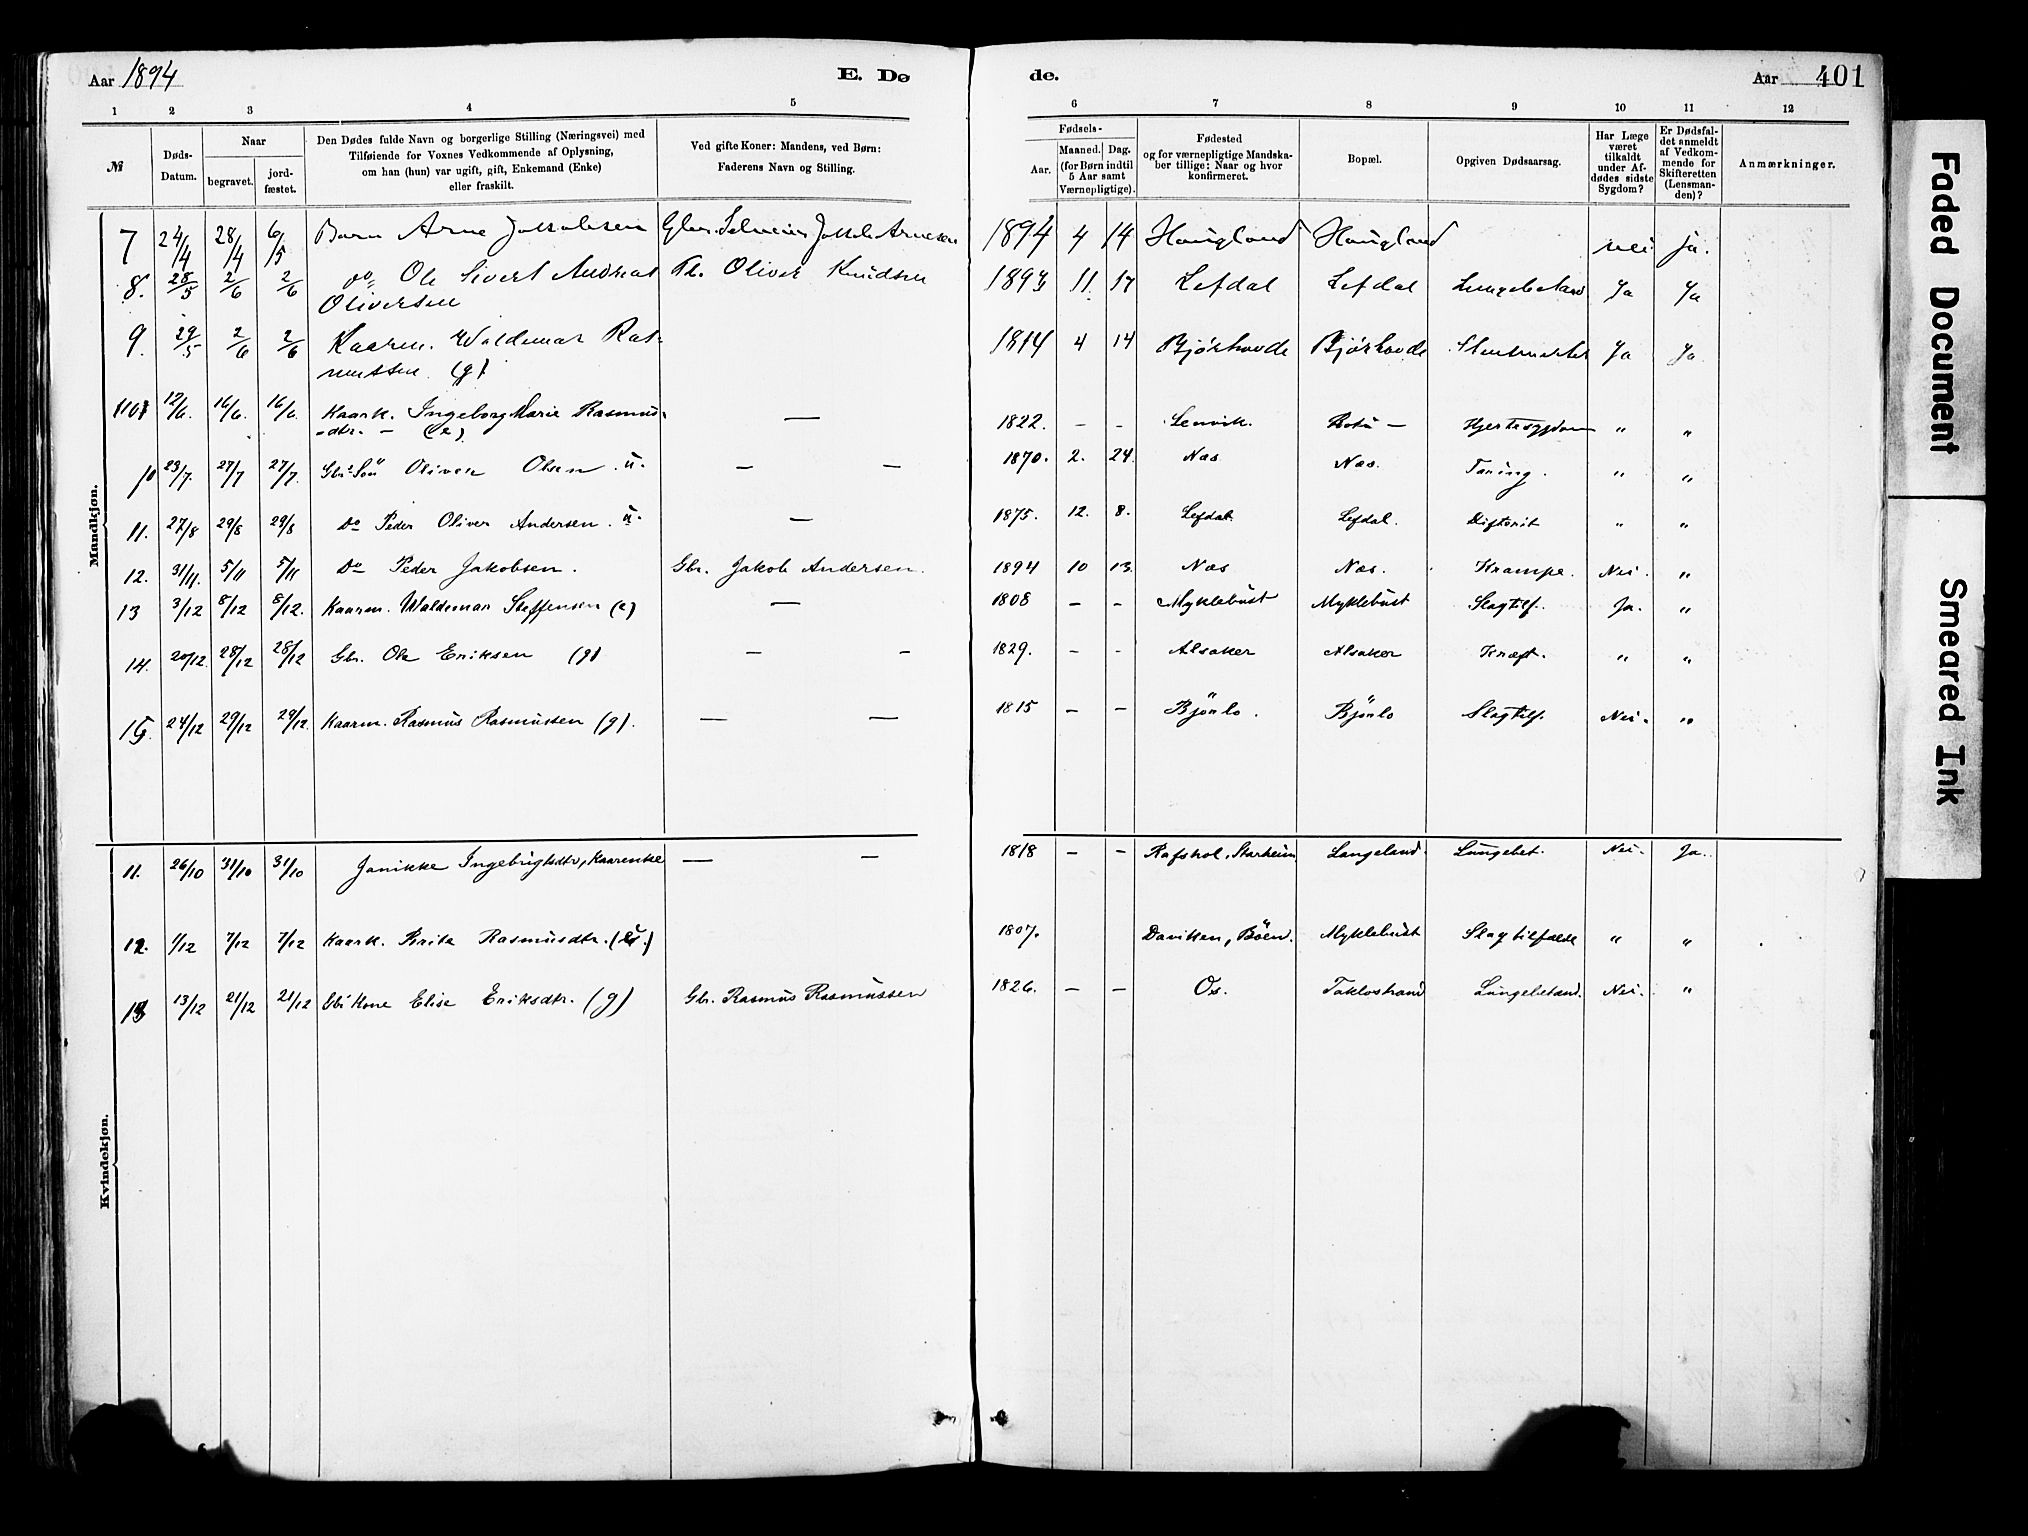 Aar 1894 E. Dø de. Aar 401
1 2 3 4 5 6 7 8 9 10 11 12
№ Døds-Datum. Naar begravet. jord-fæstet. Den Dødes fulde Navn og borgerlige Stilling (Næringsvei) med Tilføiende for Voxnes Vedkommende af Oplysning, om han (hun) var ugift, gift, Enkemand (Enke) eller fraskilt. Ved gifte Koner: Mandens, ved Børn: Faderens Navn og Stilling. Fødsels- Aar. Maaned. Dag. (for Børn indtil 5 Aar samt Værnepligtige). Fødested og for værnepligtige Mandska-ber tillige: Naar og hvor konfirmeret. Bopæl. Opgiven Dødsaarsag. Har Læge været tilkaldt under Af-dødes sidste Sygdom? Er Dødsfal-det anmeldt af Vedkom-mende for Skifteretten (Lensman-den)? Anmærkninger.
Mandkjøn.
7 24/4 28/4 6/5 Barn Arne Jakobsen Jakob Arnesen 1894 4 14 Haugland Haugland nei ja.
8. 28/5 2/6 2/6 do Ole Sivert Andreas Oliver Knudsen 11. 17 Lefdal Lefdal Lungebetænd Ja Ja
Oliversen
9. 29/5 2/6 2/6 Kaarm. Waldemar Ras- 1814 4 14 Bjørhovde Bjørhovde Ja Ja
mussen. (g).
12/6. 16/6. 16/6. Kaark. Ingeborg Marie Rasmus- — 1822. - - Hjertesygdom " "
-dtr. - (e)
10 23/7. 27/7 27/7. Gbr. Søn Oliver Olsen. u. — — 1870. 2. 24. Næs Næs. Tæring. " "
11. 27/8 29/8 29/8 Do Peder Oliver Andersen. u. — 1875. 12. 8. Lefdal Lefdal. Difterit " "
12. 31/11. 5/11 5/11 Do Peder Jakobsen. Gbr. Jakob Andersen. 1894 10 13. Næs Næs. Krampe. Nei. "
13 3/12 8/12 8/12. Kaarm. Waldemar Steffensen (e) — 1808 - - Myklebust Myklebust Slagtilf. Ja. "
14. 20/12. 28/12 28/12 Gbr. Ole Eriksen (g) — - 1829. - - Alsaker Alsaker Kræft. " "
15. 24/12 29/12 29/12. Kaarm. Rasmus Rasmussen (g). — — 1815 - - Bjørlo. Bjørlo Slagtilf. Nei. "
Kvindekjøn.
11. 26/10 31/10 31/10 Janikke Ingebrigtsdtr, Kaarenke — — 1818 - - Rafstol, Starheim Langeland. Lungebet. Nei. Ja.
12. 1/12 7/12 7/12 Kaark. Brite Rasmusdtr. 1807. Daviken, Böen. Myklebust Slagtilfælde " "
13 13/12 21/12 21/12 Gbr Kone Elise Eriksdtr. (g) Gbr. Rasmus Rasmussen 1826. - - Os. Taklostrand Lungebetænd. Nei. "
Faded Document
Smeared Ink